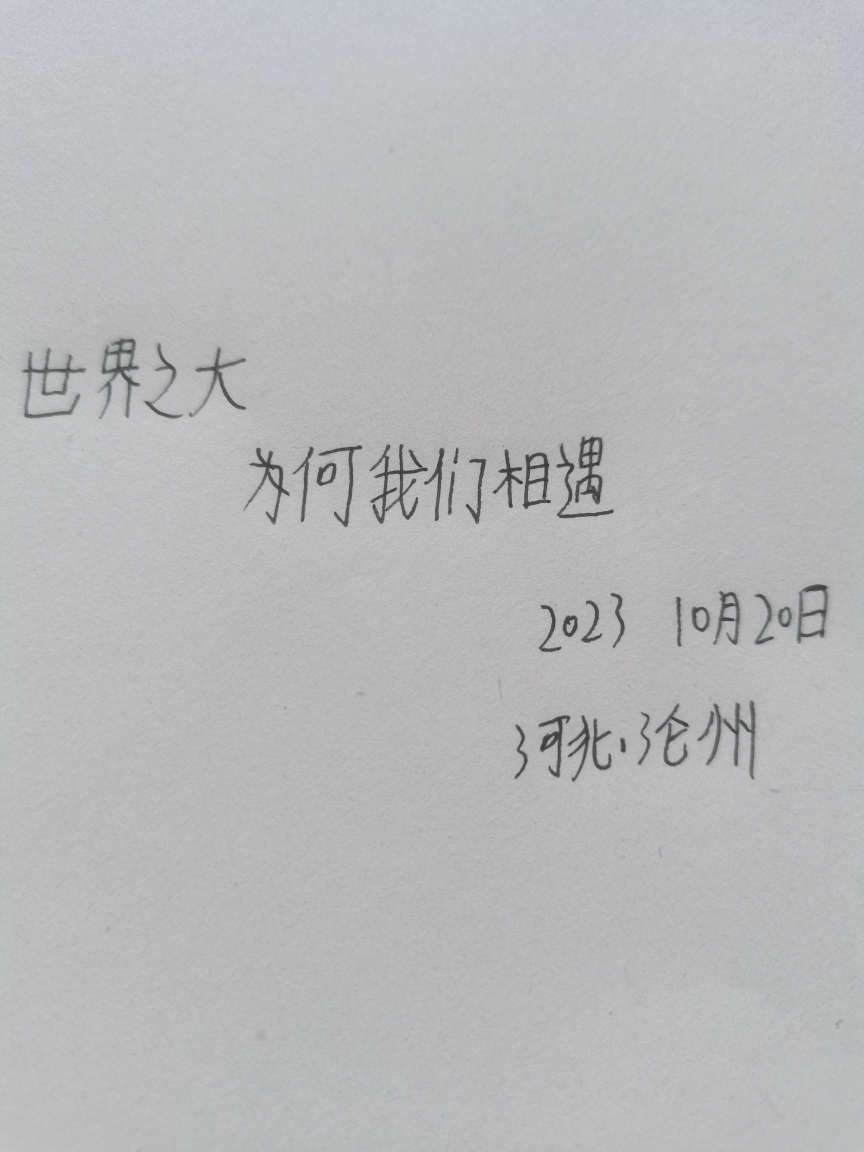 世界之大
为何我们相遇
2023 10月20日
河北.沧州